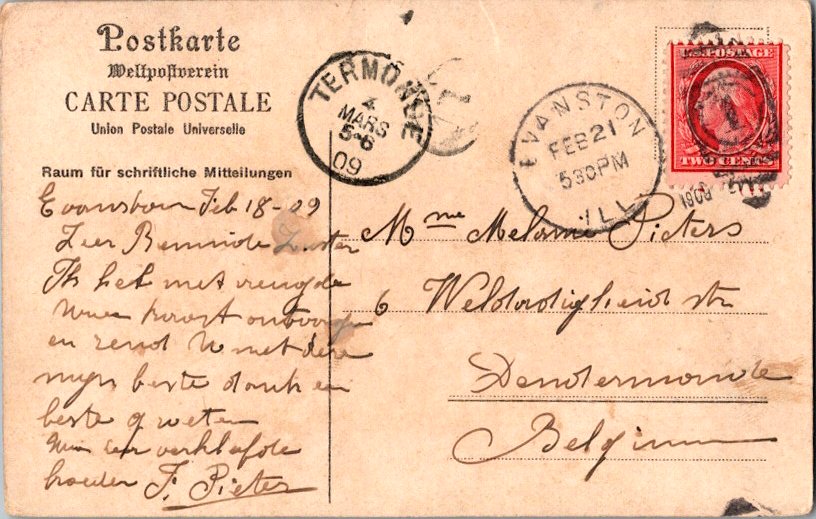 Postkarte
Weltpostverein
CARTE POSTALE
Union Postale Universelle
Raum für schriftliche Mitteilungen
TERMONDE
4
MARS
5-6
09
EVANSTON
FEB 21
530PM
ILL.
U.S. POSTAGE
TWO CENTS
1909
Evanston Feb 18-09
Zeer Beminde Zuster
Ik heb met vreugde
Uwe kaart ontvangen
en zend U met deze
mijn beste dank en
beste groeten
Uw verkleefde
broeder F. Pieters
Mme Melanie Pieters
6 Weldadigheid str
Dendermonde
Belgium